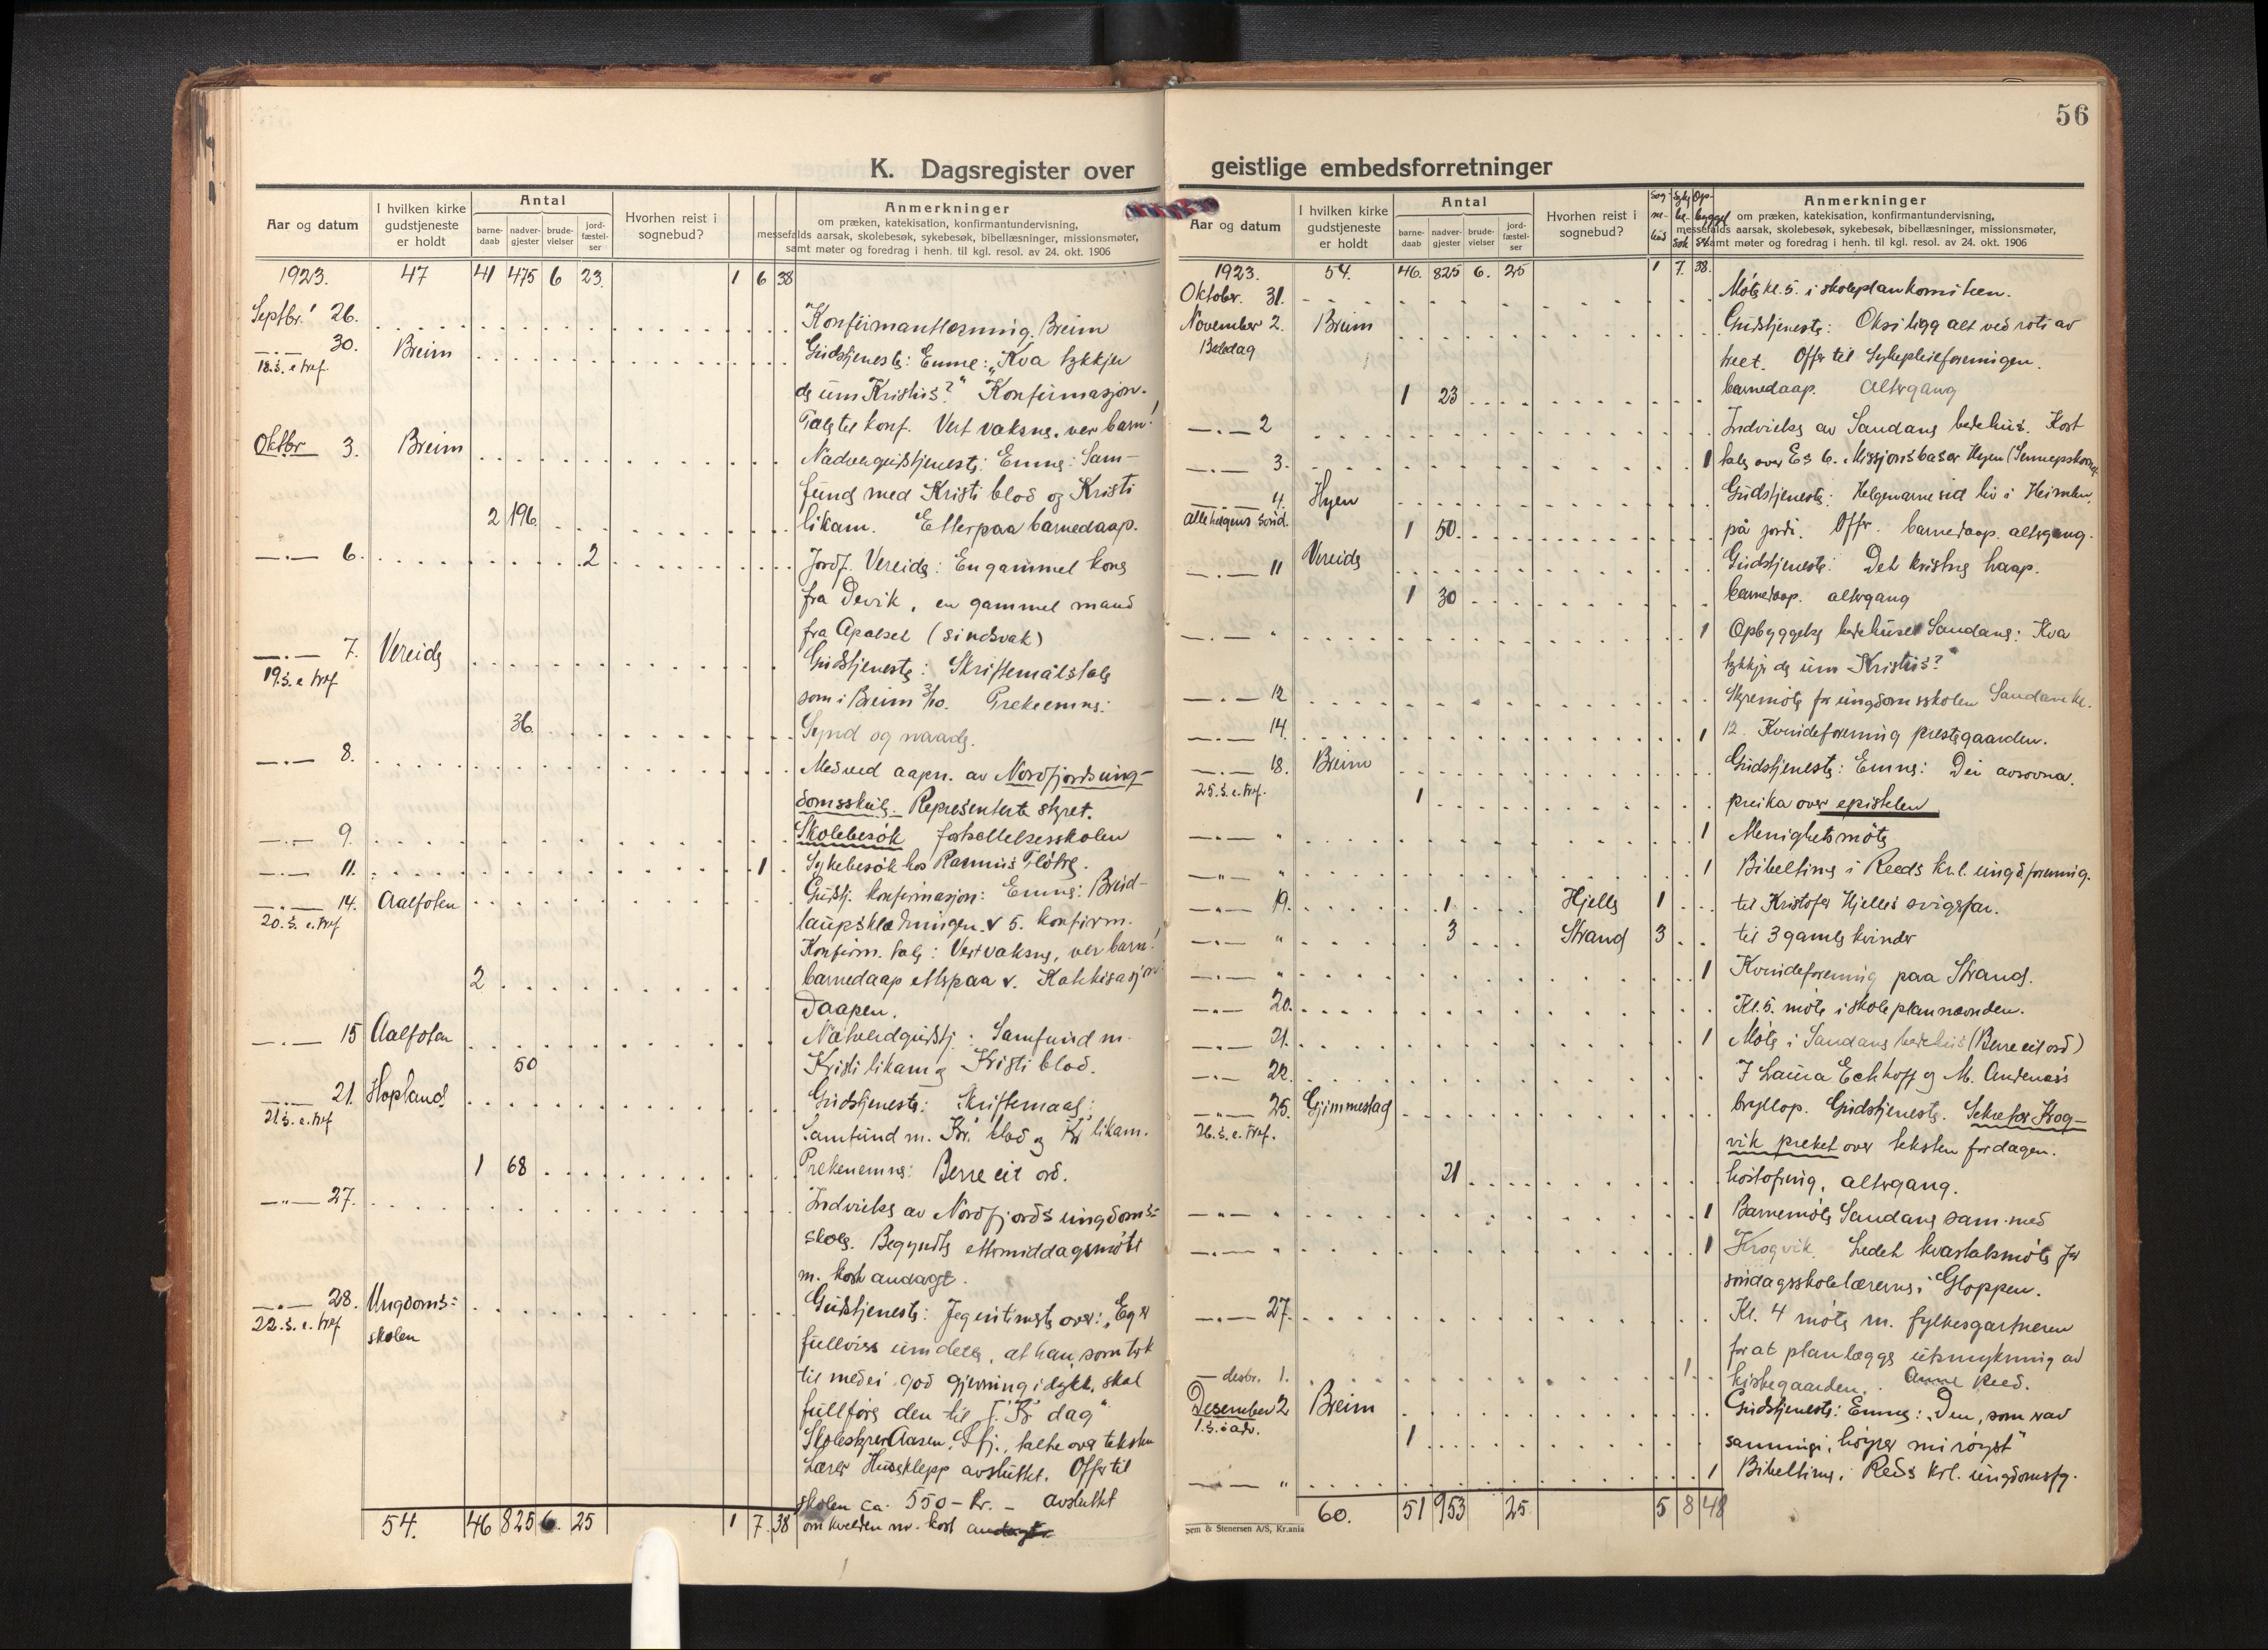 56
K. Dagsregister over
Aar og datum
I hvilken kirke gudstjeneste er holdt
Antal
barne-daab
nadver-gjester
brude-vielser
jord-fæstel-ser
Hvorhen reist i sognebud?
Anmerkninger
om præken, katekisation, konfirmantundervisning,
messefalds aarsak, skolebesøk, sykebesøk, bibellæsninger, missionsmøter,
samt møter og foredrag i henh. til kgl. resol. av 24. okt. 1906
1923. 47 41 475 6 23. 1 6 38
Septbr. 26. Konfirmantlæsning, Breim
30. Breim Gudstjeneste: Emne: "Kva tykkjer
18. s. e tref. de um Kristus?" Konfirmasjon.
Tale til konf. Vert vaksne, ver barn!
Oktbr 3. Breim Nadvergudstjeneste: Emne: Sam-
fund med Kristi blod og Kristi
2 196 likam. Etterpaa barnedaap.
6. 2 Jordf. Vereide: En gammel kone
fra Devik, en gammel mand
fra Apalset (sindsvak)
7. Vereide Gudstjeneste: Skriftemålstale
19. s. e tref som i Breim 3/10. Prekeemne:
36. Synd og naade.
8. Med ved aapn. av Nordfjord ung-
domsskule. Representerte styret.
9. Skolebesøk fortsettelsesskolen
11. 1 Sykebesøk hos Rasmus Fløtre.
14. Aalfoten Gudstj. konfirmasjon: Emne: Brud-
20. s. e. tref laupsklædningen. 5. konfirm.
Konfirm. tale: Vert vaksne, ver barn!
2 barnedaap etterpaa. Katekisasjon
Daapen.
15 Aalfoten Samfund m.
50 Kristi likam og Kristi blod.
21. Hopland Gudstjeneste: Skriftemaal:
21. s. e. tref Samfund m. Kr. blod og Kr likam.
1 68 Prekenemne: Berre eit ord.
27. Indvielse av Nordfjords ungdoms-
skole. Begyndte ettermiddagsmøte
m. kort andagt.
28. Ungdoms- Gudstjeneste: Jeg intimerte over: "Eg er
22. s. e. tref skolen fullviss um dette, at han, som tok
til med ei god gjerning i dykk, skal
fullføre den til J. Kr dag"
Skolestyrer Aasen, talte over teksten
Lærer Husøklepp avsluttet. Offer til
skolen ca. 550 – kr. – avsluttet
54. 46 825 6. 25 1 7. 38 om kvelden m. kort andagt
geistlige embedsforretninger
Aar og datum
I hvilken kirke gudstjeneste er holdt
Antal
barne-daab
nadver-gjester
brude-vielser
jord-fæstel-ser
Hvorhen reist i sognebud?
Sog-ne-bud
Syke-be-søk
Op-byggel
Anmerkninger
om præken, katekisation, konfirmantundervisning,
messefalds aarsak, skolebesøk, sykebesøk, bibellæsninger, missionsmøter,
samt møter og foredrag i henh. til kgl. resol. av 24. okt. 1906
1923. 54. 46. 825 6. 25 1 7. 38.
Oktober. 31. Møte kl. 5. i skoleplankomiteen.
November 2. Breim Gudstjeneste: Øksi ligg alt ved roti av
Bededag treet. Offer til Sykepleieforeningen.
1 23 barnedaap. Altergang
2 Indvielse av Sandane bedehus. Kort
3. 1 tale over Es 6. Missjonsbasar Hyen (Sennepskornet
4. Hyen Gudstjeneste: Helgenarne sid liv i Heimlen,
alle helgens sønd. 1 50. på jordi. Offer. barnedaap. altergang.
11 Vereide Gudstjeneste: Det kristne haap.
1 30 barnedaap. altergang
" 1 Opbyggelse bedehuset Sandane: Kva
tykkjer de um Kristus?
12 Styremøte for ungdomsskolen Sandane kl.
14. 1 12. Kvindeforening prestegaarden.
18. Breim Gudstjeneste: Emne: Dei avsovna.
25. s. e. tref. 1 preika over epistelen
" 1 Menighetsmøte
" 1 Bibeltime i Reeds kr.l. ungd.forening.
19. 1 Hjelle 1 til Kristofer Hjelles svigerfar.
" 3 Strand 3 til 3 gamle kvinder
" 1 Kvindeforening paa Strand.
20. Kl. 5. møte i skoleplannævnden.
21. 1 Møte i Sandane bedehus (Berre eit ord)
22. I Laura Eckhoff og M. Andenæs's
25. Gjimmestad bryllop. Gudstjeneste. Sekretær Krog-
26. s. e. tref. vik preket over teksten for dagen.
21 høstofring, altergang.
" 1 Barnemøte Sandane sam. med
" 1 Krogvik. Ledet kvartalsmøte for
søndagsskolelærerne i Gloppen.
27. Kl. 4 møte m. fylkesgartneren
for at planlægge utsmykning av
desbr. 1. 1 kirkegaarden. Anne Reed.
Desember 2 Breim Gudstjeneste: Emne: "Den, som er av
1. s. i adv. 1 sanningi, høyrer mi røyst"
" 1 Bibeltime i Reds krl. ungdomsfg.
60. 51 953 25. 5 8 48
Sem & Stenersen A/S, Kr.ania